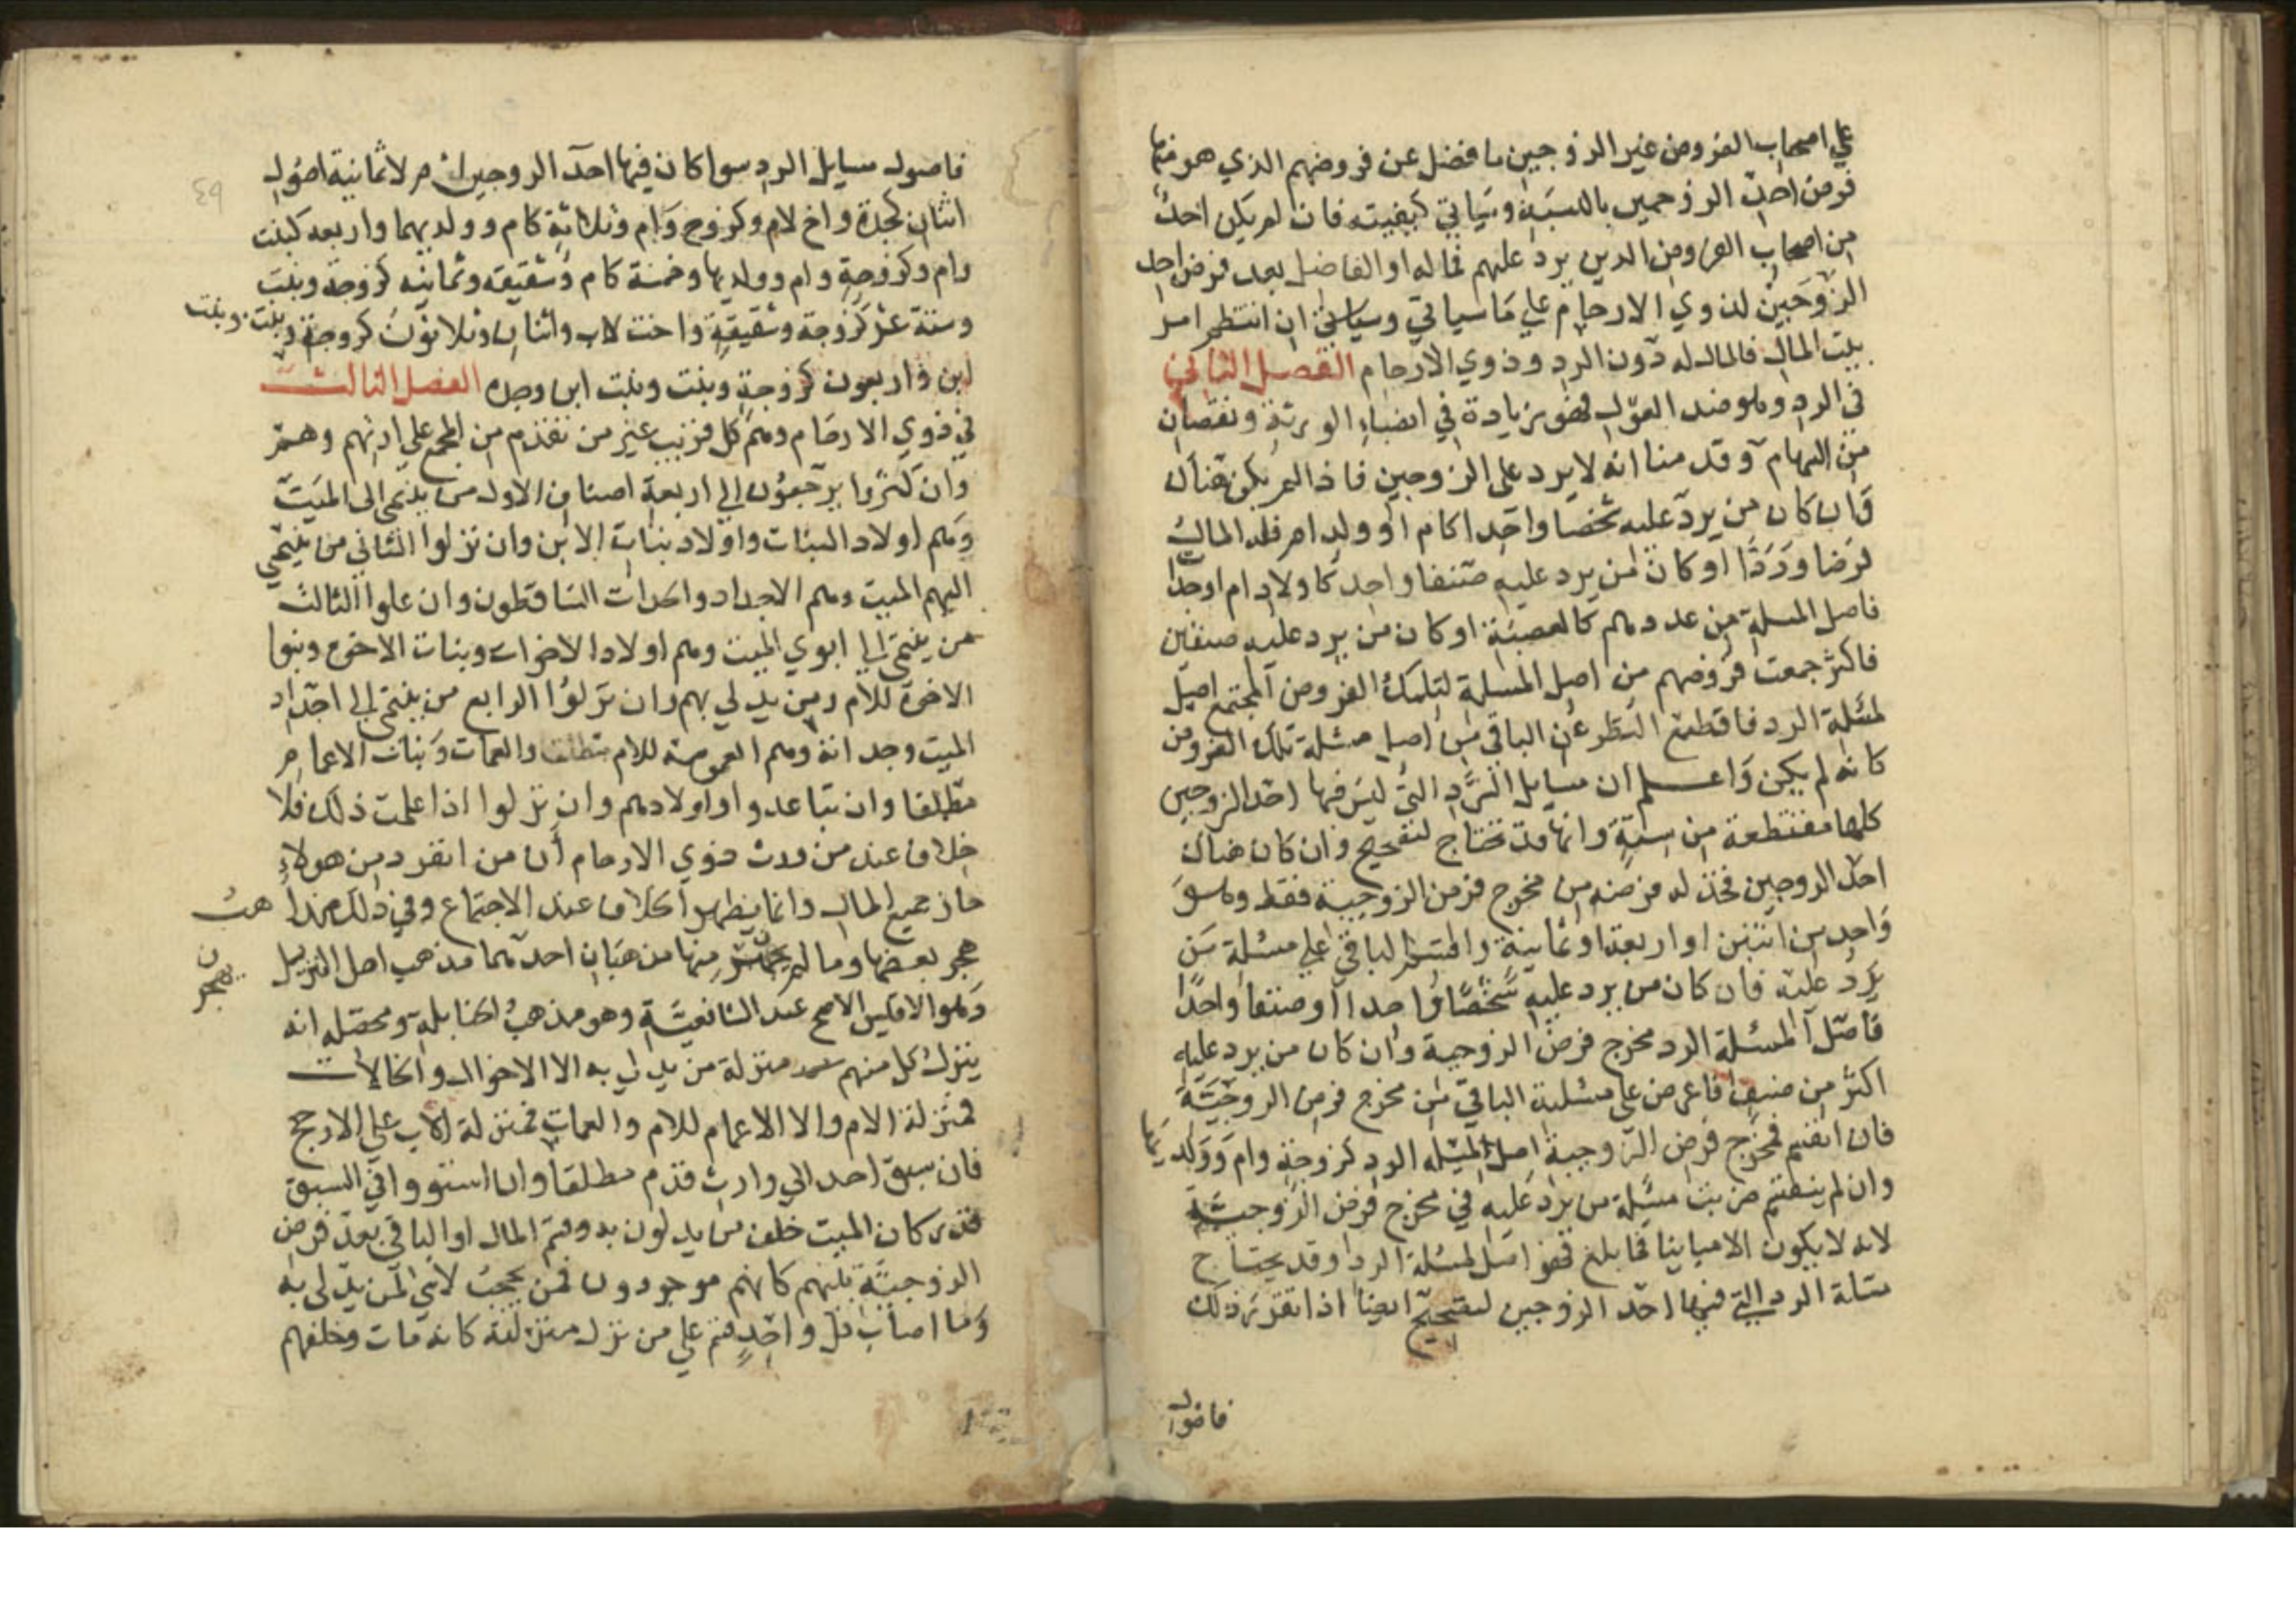 علي اصحاب الفروض غير الزوجين ما فضل عن فروضهم الذي هو فيها
فرض احد الزوجين بالنسبة وسياتي كيفيته فان لم يكن احد
من اصحاب الفروض الدين يرد عليهم فماله او الفاضل بعد فرض احد
الزوجين لذوي الارحام علي ما سياتي وسياتي ان انتظم امر
بيت المال فالمال له دون الرد وذوي الارحام الفصل الثاني
في الرد وهو ضد العول فهو زيادة في انصباء الورثة ونقصان
من السهام وقدمنا انه لا يرد على الزوجين فاذا لم يكن هناك
فان كان من يرد عليه شخصا واحدا كام او ولد ام فله المال
فرضا وردا او كان من يرد عليه صنفا واحد كاولاد ام او جدا
فاصل المسلة من عددهم كالعصبة او كان من يرد عليه صنفين
فاكثر جمعت فروضهم من اصل المسلة لتلك الفروض المجتمع اصل
لمسلة الرد فاقطع النظر عن الباقي من اصل مسئلة تلك الفروض
كانه لم يكن واعلم ان مسايل الرد التي ليس فيها احد الزوجين
كلها مقتطعة من ستة وانها قد تحتاج لتصحيح وان كان هناك
احد الزوجين فخذ له فرضه من مخرج فرض الزوجية فقط وهو
واحد من اثنين او اربعة او ثمانية واقسم الباقي علي مسئلة من
يرد عليه فان كان من يرد عليه شخصا واحدا او صنفا واحدا
فاصل المسئلة الرد مخرج فرض الزوجية وان كان من يرد عليه
اكثر من صنف فاعرض علي مسئلته الباقي من مخرج فرض الزوجية
فان انقسم فمخرج فرض الزوجية اصل المسئله الرد كزوجة وام وولديها
وان لم ينقسم ضربت مسئلة من يرد عليه في مخرج فرض الزوجية
لانه لا يكون الا مباينا فما بلغ فهو اصل لمسئلة الرد وقد يحتاج
مسلة الرد التي فيها احد الزوجين لتصحيح ايضا اذا تقرر ذلك
فاصول
فاصول مسايل الرد سوا كان فيها احد الزوجين ام لا ثمانية اصول
اثنان كجدة واخ لام وكزوج وام وثلاثة كام وولديهما واربعه كبنت
وام وكزوجة وام وولديها وخمسة كام وشقيقه وثمانيه كزوجة وبنت
وستة عشر كزوجة وشقيقة واخت لاب واثنان وثلاثون كزوجة وبنت وبنت
ابن واربعون كزوجة وبنت وبنت ابن وجده الفصل الثالث
في ذوي الارحام وهم كل قريب غير من تقدم من المجمع علي ارثهم وهم
وان كثروا يرجعون الي اربعة اصناف الاول من ينتمي الى الميت
وهم اولاد البنات واولاد بنات الابن وان نزلوا الثاني من ينتمي
اليهم الميت وهم الاجداد والجدات الساقطون وان علوا الثالث
من ينتمي الي ابوي الميت وهم اولاد الاخوات وبنات الاخوة وبنوا
الاخوة للام ومن يدلي بهم وان نزلوا الرابع من ينتمي الي اجداد
الميت وجداته وهم العمومة للام مطلقا والعمات وبنات الاعمام
مطلقا وان تباعدوا واولادهم وان نزلوا اذا علمت ذلك فلا
خلاف عند من ورث ذوي الارحام ان من انفرد من هولاء
حاز جميع المال وانما يظهر الخلاف عند الاجتماع وفي ذلك مذاهب
هجر بعضها وما لم يهجر منها مذهبان احدهما مذهب اهل التنزيل
يهجر
وهو الاقيس الاصح عند الشافعية وهو مذهب الحنابلة ومحصله انه
ينزل كل منهم منزلة من يدلي به الا الاخوال والخالات
فمنزلة الام والا الاعمام للام والعمات فمنزلة الاب علي الارجح
فان سبق احد الي وارث قدم مطلقا وان استووا في السبق
قدر كان الميت خلف من يدلون به وقسم المال او الباقي بعد فرض
الزوجية بينهم كانهم موجودون فمن يحجب لاشي لمن يدلي به
وما اصاب كل واحد قسم علي من نزل منزلته كانه مات وخلفهم